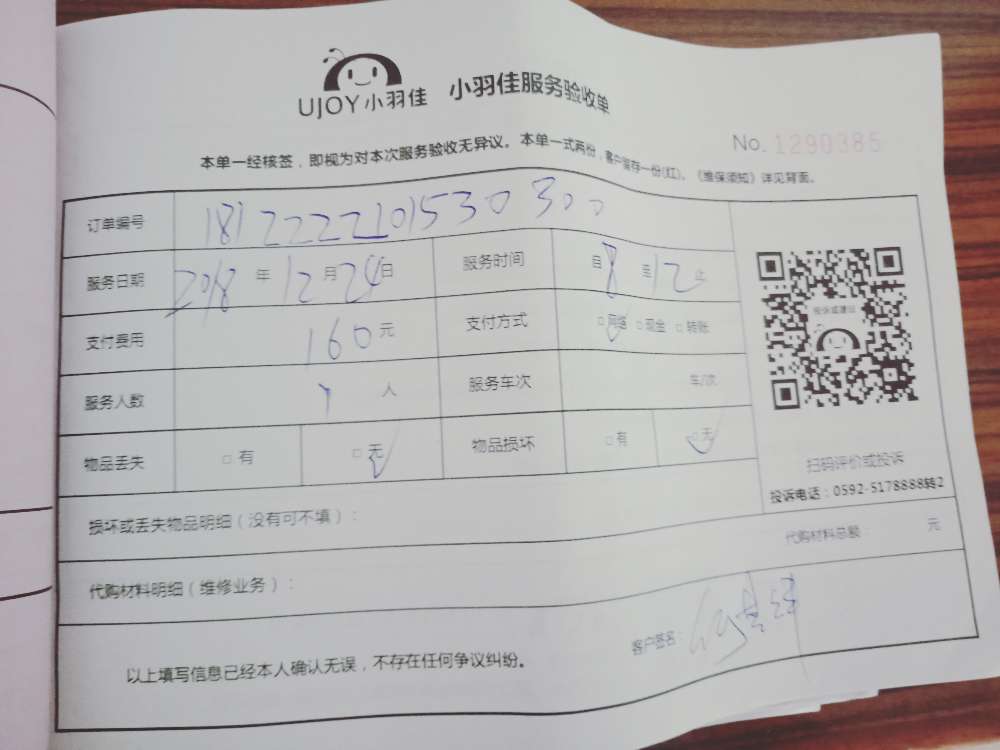 UJOY小羽佳 小羽佳服务验收单
No. 1290385
本单一经核签，即视为对本次服务验收无异议。本单一式两份，客户留存一份(红)。《维保须知》详见背面。
订单编号 1812222101530300
服务日期 2018 年 12 月 24 日 服务时间 自 8 至 12 止
支付费用 160 元 支付方式 □ 网络 □ 现金 □ 转账
服务人数 1 人 服务车次 车/次
物品丢失 □ 有 □ 无 物品损坏 □ 有 □ 无
投诉或建议
扫码评价或投诉
投诉电话：0592-5178888转2
损坏或丢失物品明细（没有可不填）：
代购材料明细（维修业务）： 代购材料总额： 元
以上填写信息已经本人确认无误，不存在任何争议纠纷。 客户签名：